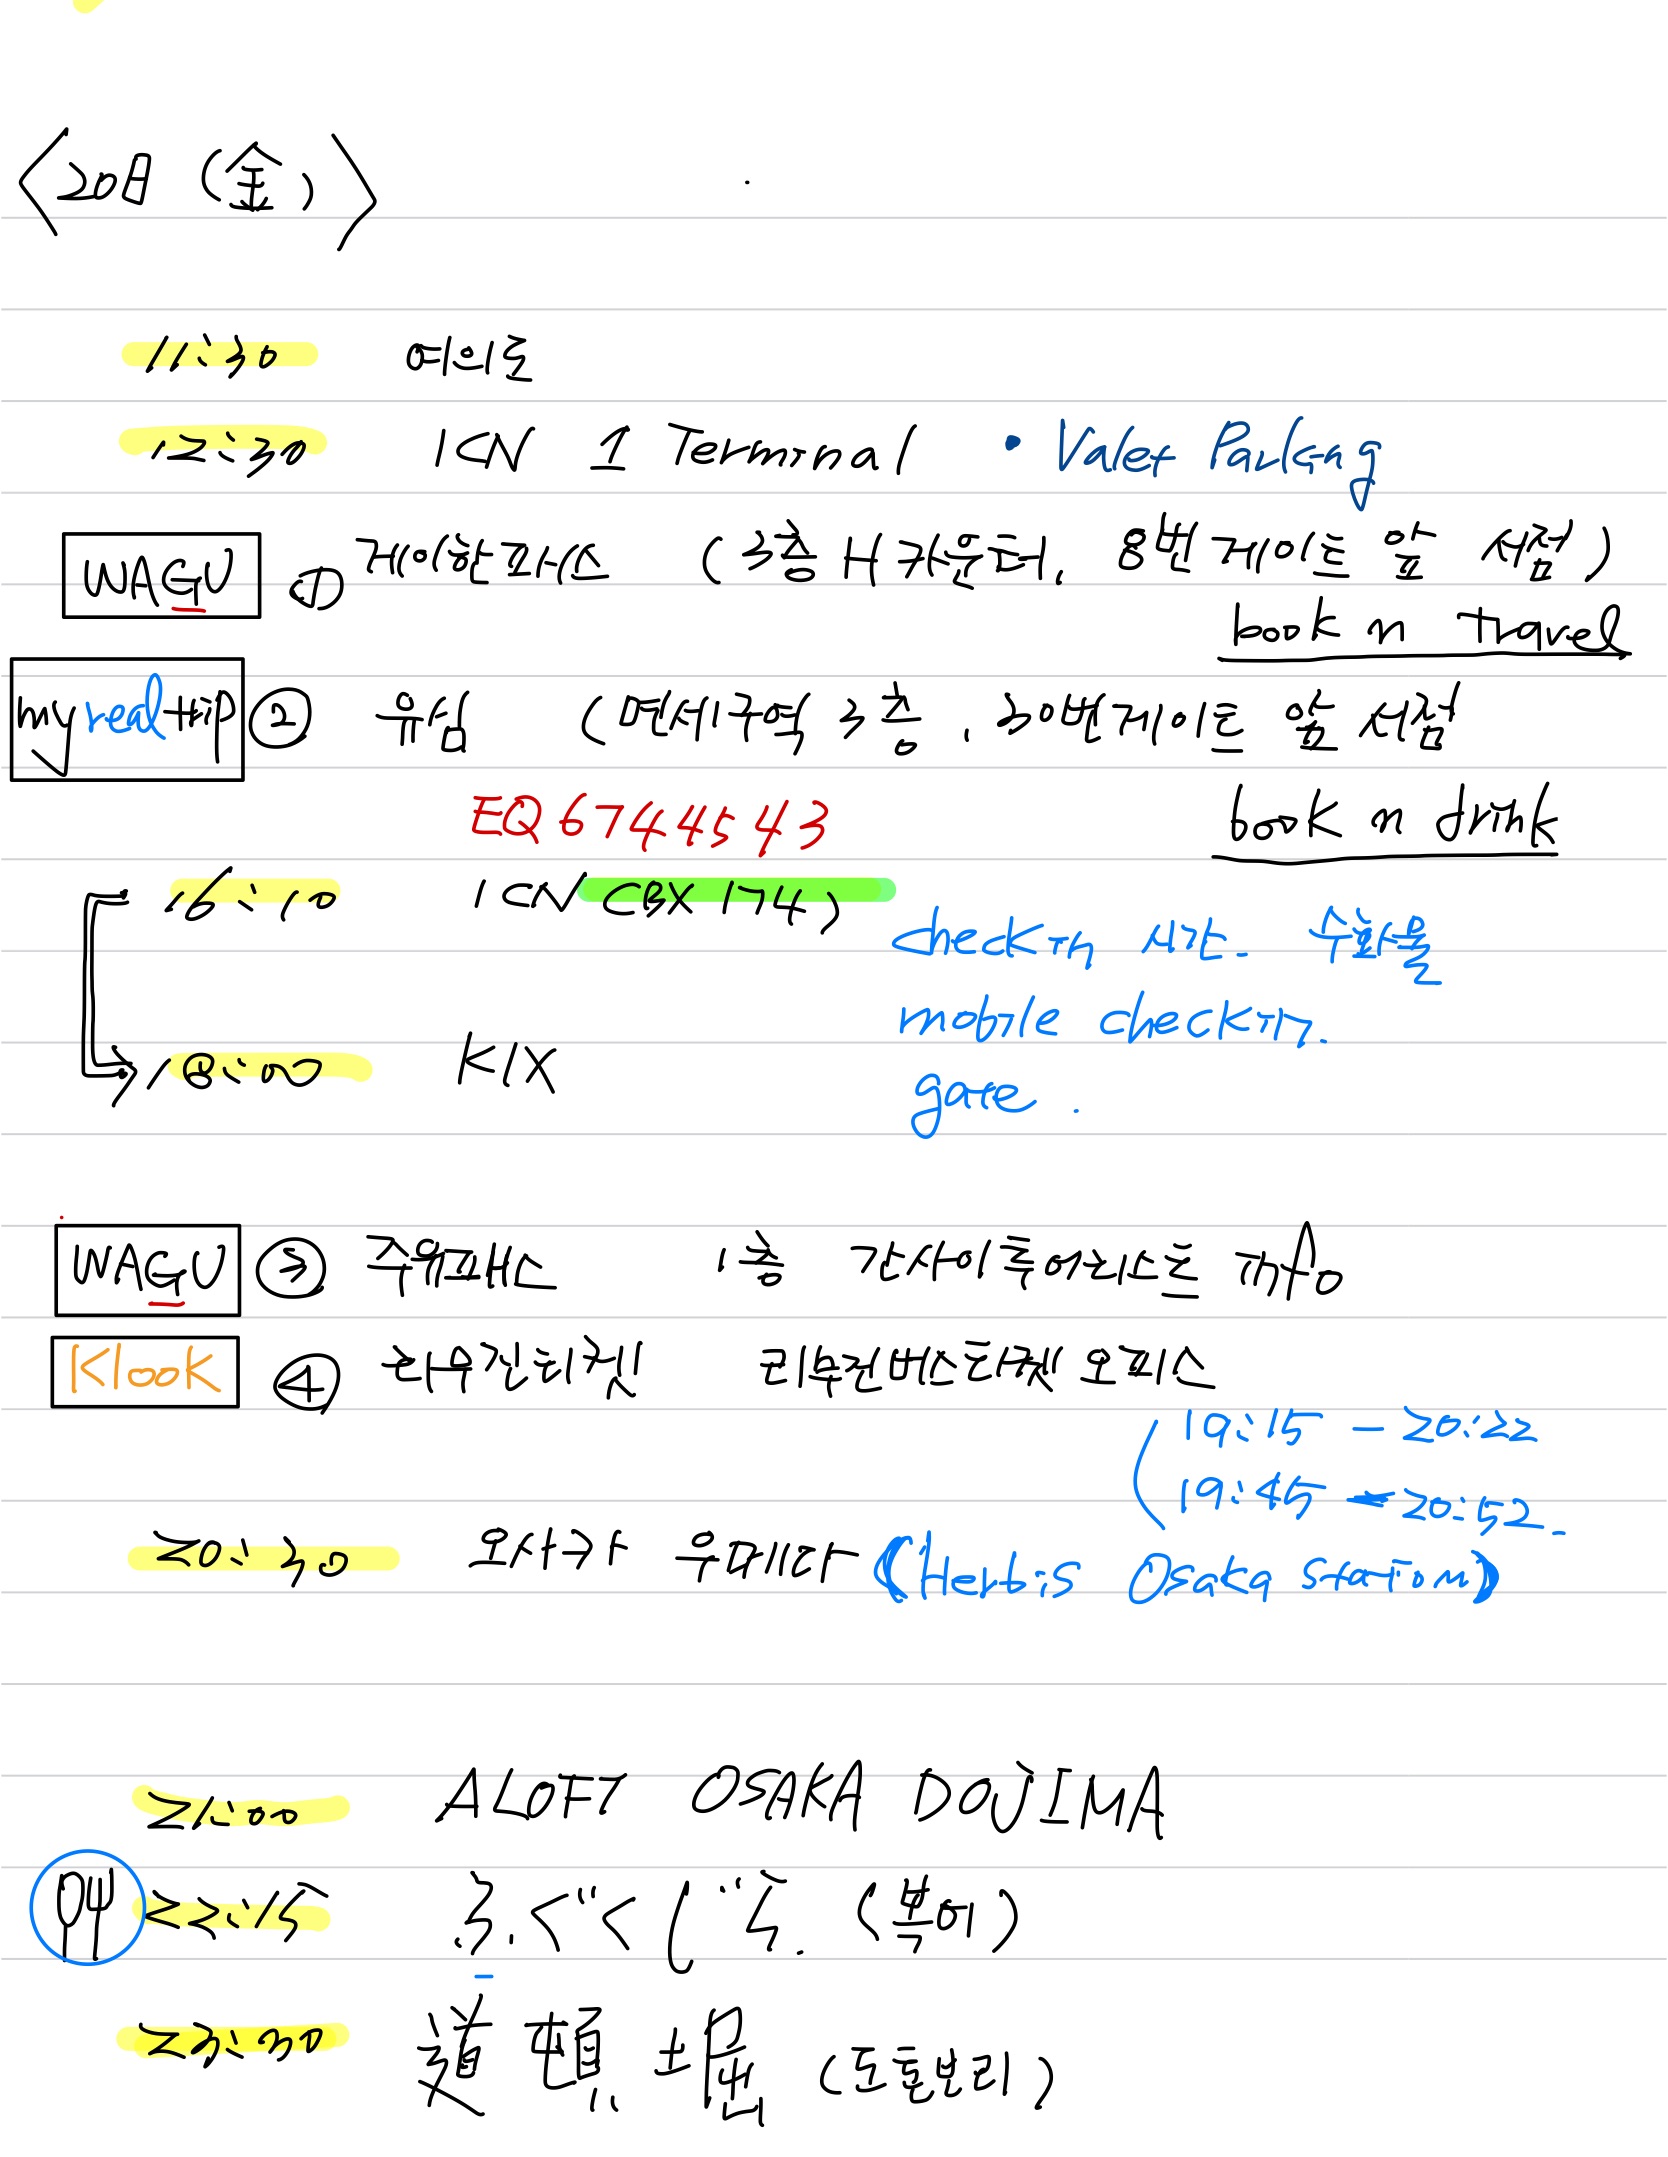 <20日 (金)>
11:30 여의도
12:30 ICN 1 Terminal • Valet Parking
WAGU ① 게이한패스 (3층 H카운터, 8번게이트 앞 서점)
book n travel
myrealtrip ② 유심 (면세구역 3층, 30번게이트 앞 서점
EQ6744543 book n drink
16:10 ICN (BX174)
checkin 시간. 수화물
mobile checkin.
18:00 KIX
gate.
WAGU ③ 주유패스 1층 간사이투어리스트 info
Klook ④ 라무진티켓 리무진버스티켓오피스
19:15 - 20:22
19:45 - 20:52.
20:30 오사카 우메다 (Herbis Osaka Station)
21:00 ALOFT OSAKA DOJIMA
22:15 ふぐくじら. (복어)
23:30 道頓堀 (도톤보리)